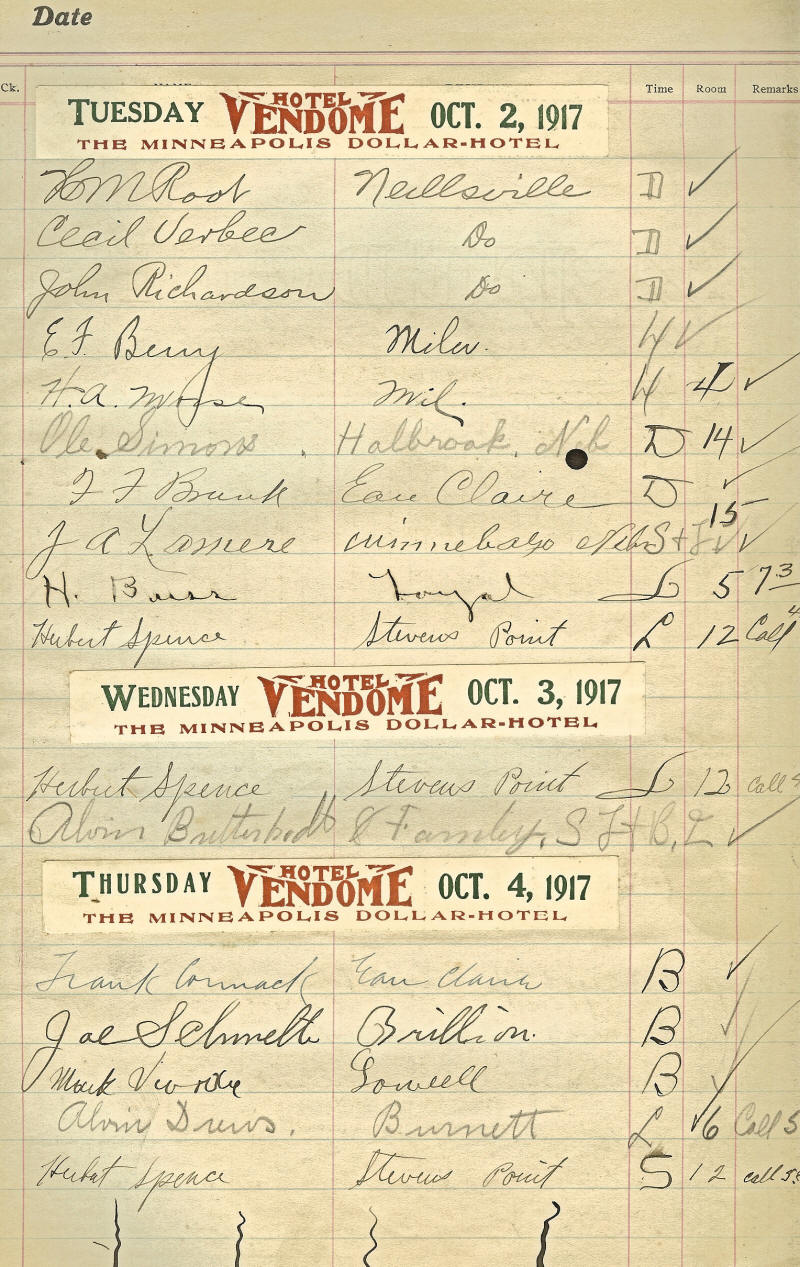 Date
Ck. Time Room Remarks
TUESDAY HOTEL VENDOME OCT. 2, 1917
THE MINNEAPOLIS DOLLAR-HOTEL
H M Root Neillsville D ✓
Cecil Verbec Do D ✓
John Richardson Do D ✓
E F Berry Milw. ✓
H. A. Morse Mil. 4 ✓
Ole Simons. Holbrook, Neb D 14 ✓
F F Brunk Eau Claire D ✓
15
J A Lamere Winnebago Neb S + ✓ ✓
H. Loyal L 5 7 3
Herbert Spence Stevens Point L 12 Call 4
WEDNESDAY HOTEL VENDOME OCT. 3, 1917
THE MINNEAPOLIS DOLLAR-HOTEL
Herbert Spence Stevens Point L 12 Call
Alvin & Family, S + B, ✓
THURSDAY HOTEL VENDOME OCT. 4, 1917
THE MINNEAPOLIS DOLLAR-HOTEL
Frank Cormack Eau Claire B ✓
Joe Brillion. B ✓
Mark Lowell B ✓
Alvin Drews. Burnett L 6 Call 5
Herbert Spence Stevens Point S 12 call